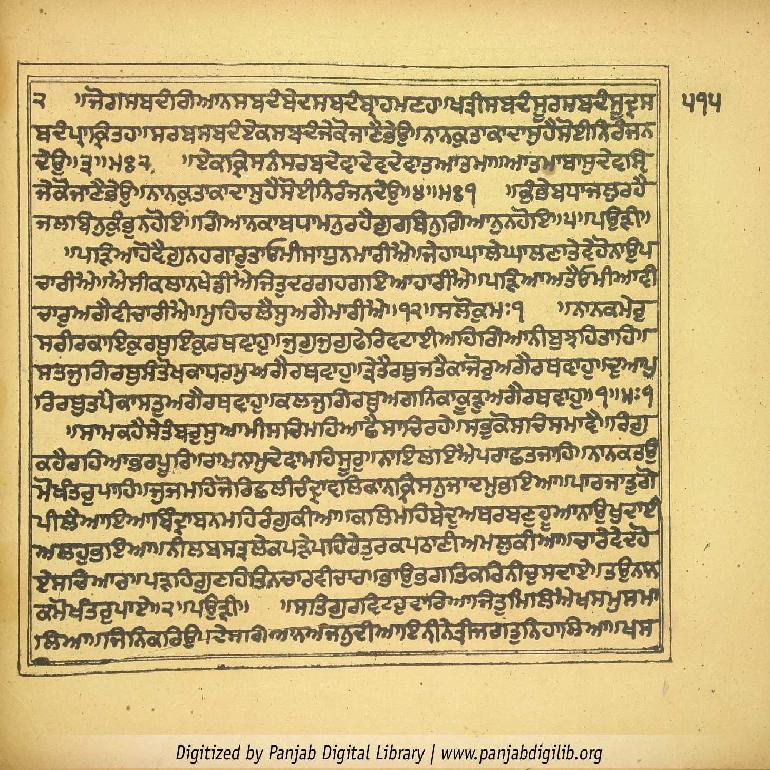 ੨ ॥ਜੋਗਸਬਦੰਗਿਆਨਸਬਦੰਬੇਦਸਬਦੰਬ੍ਰਾਹਮਣਹ॥ਖਤ੍ਰੀਸਬਦੰਸੂਰਸਬਦੰਸੂਦ੍ਰਸ ੫੧੫
ਬਦੰਪ੍ਰਾਕ੍ਰਿਤਹ॥ਸਰਬਸਬਦੰਏਕਸਬਦੰਜੇਕੋਜਾਣੈਭੇਉ॥ਨਾਨਕੁਤਾਕਾਦਾਸੁਹੈਸੋਈਨਿਰੰਜਨ
ਦੇਉ॥੩॥ਮਃ੨ ॥ਏਕਕ੍ਰਿਸਨੰਸਰਬਦੇਵਾਦੇਵਦੇਵਾਤਆਤਮਾ॥ਆਤਮਾਬਾਸੁਦੇਵਸਿ
ਜੇਕੋਜਾਣੈਭੇਉ॥ਨਾਨਕੁਤਾਕਾਦਾਸੁਹੈਸੋਈਨਿਰੰਜਨਦੇਉ॥੪॥ਮਃ੧ ॥ਕੁੰਭੇਬਧਾਜਲੁਰਹੈ
ਜਲਬਿਨੁਕੁੰਭੁਨਹੋਇ॥ਗਿਆਨਕਾਬਧਾਮਨੁਰਹੈਗੁਰਬਿਨੁਗਿਆਨੁਨਹੋਇ॥੫॥ਪਉੜੀ॥
॥ਪੜਿਆਹੋਵੈਗੁਨਹਗਾਰੁਤਾਓਮੀਸਾਧੁਨਮਾਰੀਐ॥ਜੇਹਾਘਾਲੇਘਾਲਣਾਤੇਵੇਹੋਨਾਉਪ
ਚਾਰੀਐ॥ਐਸੀਕਲਾਨਖੇਡੀਐਜਿਤੁਦਰਗਹਗਇਆਹਾਰੀਐ॥ਪੜਿਆਅਤੈਓਮੀਆਵੀ
ਚਾਰੁਅਗੈਵੀਚਾਰੀਐ॥ਮੁਹਿਚਲੈਸੁਅਗੈਮਾਰੀਐ॥੧੨॥ਸਲੋਕੁਮਃ੧ ॥ਨਾਨਕਮੇਰੁ
ਸਰੀਰਕਾਇਕੁਰਥੁਇਕੁਰਥਵਾਹੁ॥ਜੁਗੁਜੁਗੁਫੇਰਿਵਟਾਈਅਹਿਗਿਆਨੀਬੁਝਹਿਤਾਹਿ॥
ਸਤਜੁਗਿਰਥੁਸੰਤੋਖਕਾਧਰਮੁਅਗੈਰਥਵਾਹੁ॥ਤ੍ਰੇਤੈਰਥੁਜਤੈਕਾਜੋਰੁਅਗੈਰਥਵਾਹੁ॥ਦੁਆਪੁ
ਰਿਰਥੁਤਪੈਕਾਸਤੁਅਗੈਰਥਵਾਹੁ॥ਕਲਜੁਗਿਰਥੁਅਗਨਿਕਾਕੂੜੁਅਗੈਰਥਵਾਹੁ॥੧॥ਮਃ੧
॥ਸਾਮਕਹੈਸੇਤੰਬਰੁਸੁਆਮੀਸਚਿਮਹਿਆਛੈਸਾਚਿਰਹੇ॥ਸਭੁਕੋਸਚਿਸਮਾਵੈ॥ਰਿਗੁ
ਕਹੈਰਹਿਆਭਰਪੂਰਿ॥ਰਾਮਨਾਮੁਦੇਵਾਮਹਿਸੂਰੁ॥ਨਾਇਲਇਐਪਰਾਛਤਜਾਹਿ॥ਨਾਨਕਤਉ
ਮੋਖੰਤਰੁਪਾਹਿ॥ਜੁਜਮਹਿਜੋਰਿਛਲੀਚੰਦ੍ਰਾਵਲਿਕਾਨਕ੍ਰਿਸਨੁਜਾਦਮੁਭਇਆ॥ਪਾਰਜਾਤੁਗੋ
ਪੀਲੈਆਇਆਬਿੰਦ੍ਰਾਬਨਮਹਿਰੰਗੁਕੀਆ॥ਕਲਿਮਹਿਬੇਦੁਅਥਰਬਣੁਹੂਆਨਾਉਖੁਦਾਈ
ਅਲਹੁਭਇਆ॥ਨੀਲਬਸਤ੍ਰਲੇਕਪੜੇਪਹਿਰੇਤੁਰਕਪਠਾਣੀਅਮਲੁਕੀਆ॥ਚਾਰੇਵੇਦਹੋ
ਏਸਚਿਆਰ॥ਪੜਹਿਗੁਣਹਿਤਿਨਚਾਰਵੀਚਾਰ॥ਭਾਉਭਗਤਿਕਰਿਨੀਚੁਸਦਾਏ॥ਤਉਨਾਨ
ਕਮੋਖੰਤਰੁਪਾਏ॥੨॥ਪਉੜੀ॥ ॥ਸਤਿਗੁਰਵਿਟਹੁਵਾਰਿਆਜਿਤੁਮਿਲਿਐਖਸਮੁਸਮਾ
ਲਿਆ॥ਜਿਨਿਕਰਿਉਪਦੇਸੁਗਿਆਨਅੰਜਨੁਦੀਆਇਨੀਨੇਤ੍ਰੀਜਗਤੁਨਿਹਾਲਿਆ॥ਖਸ
Digitized by Panjab Digital Library | www.panjabdigilib.org